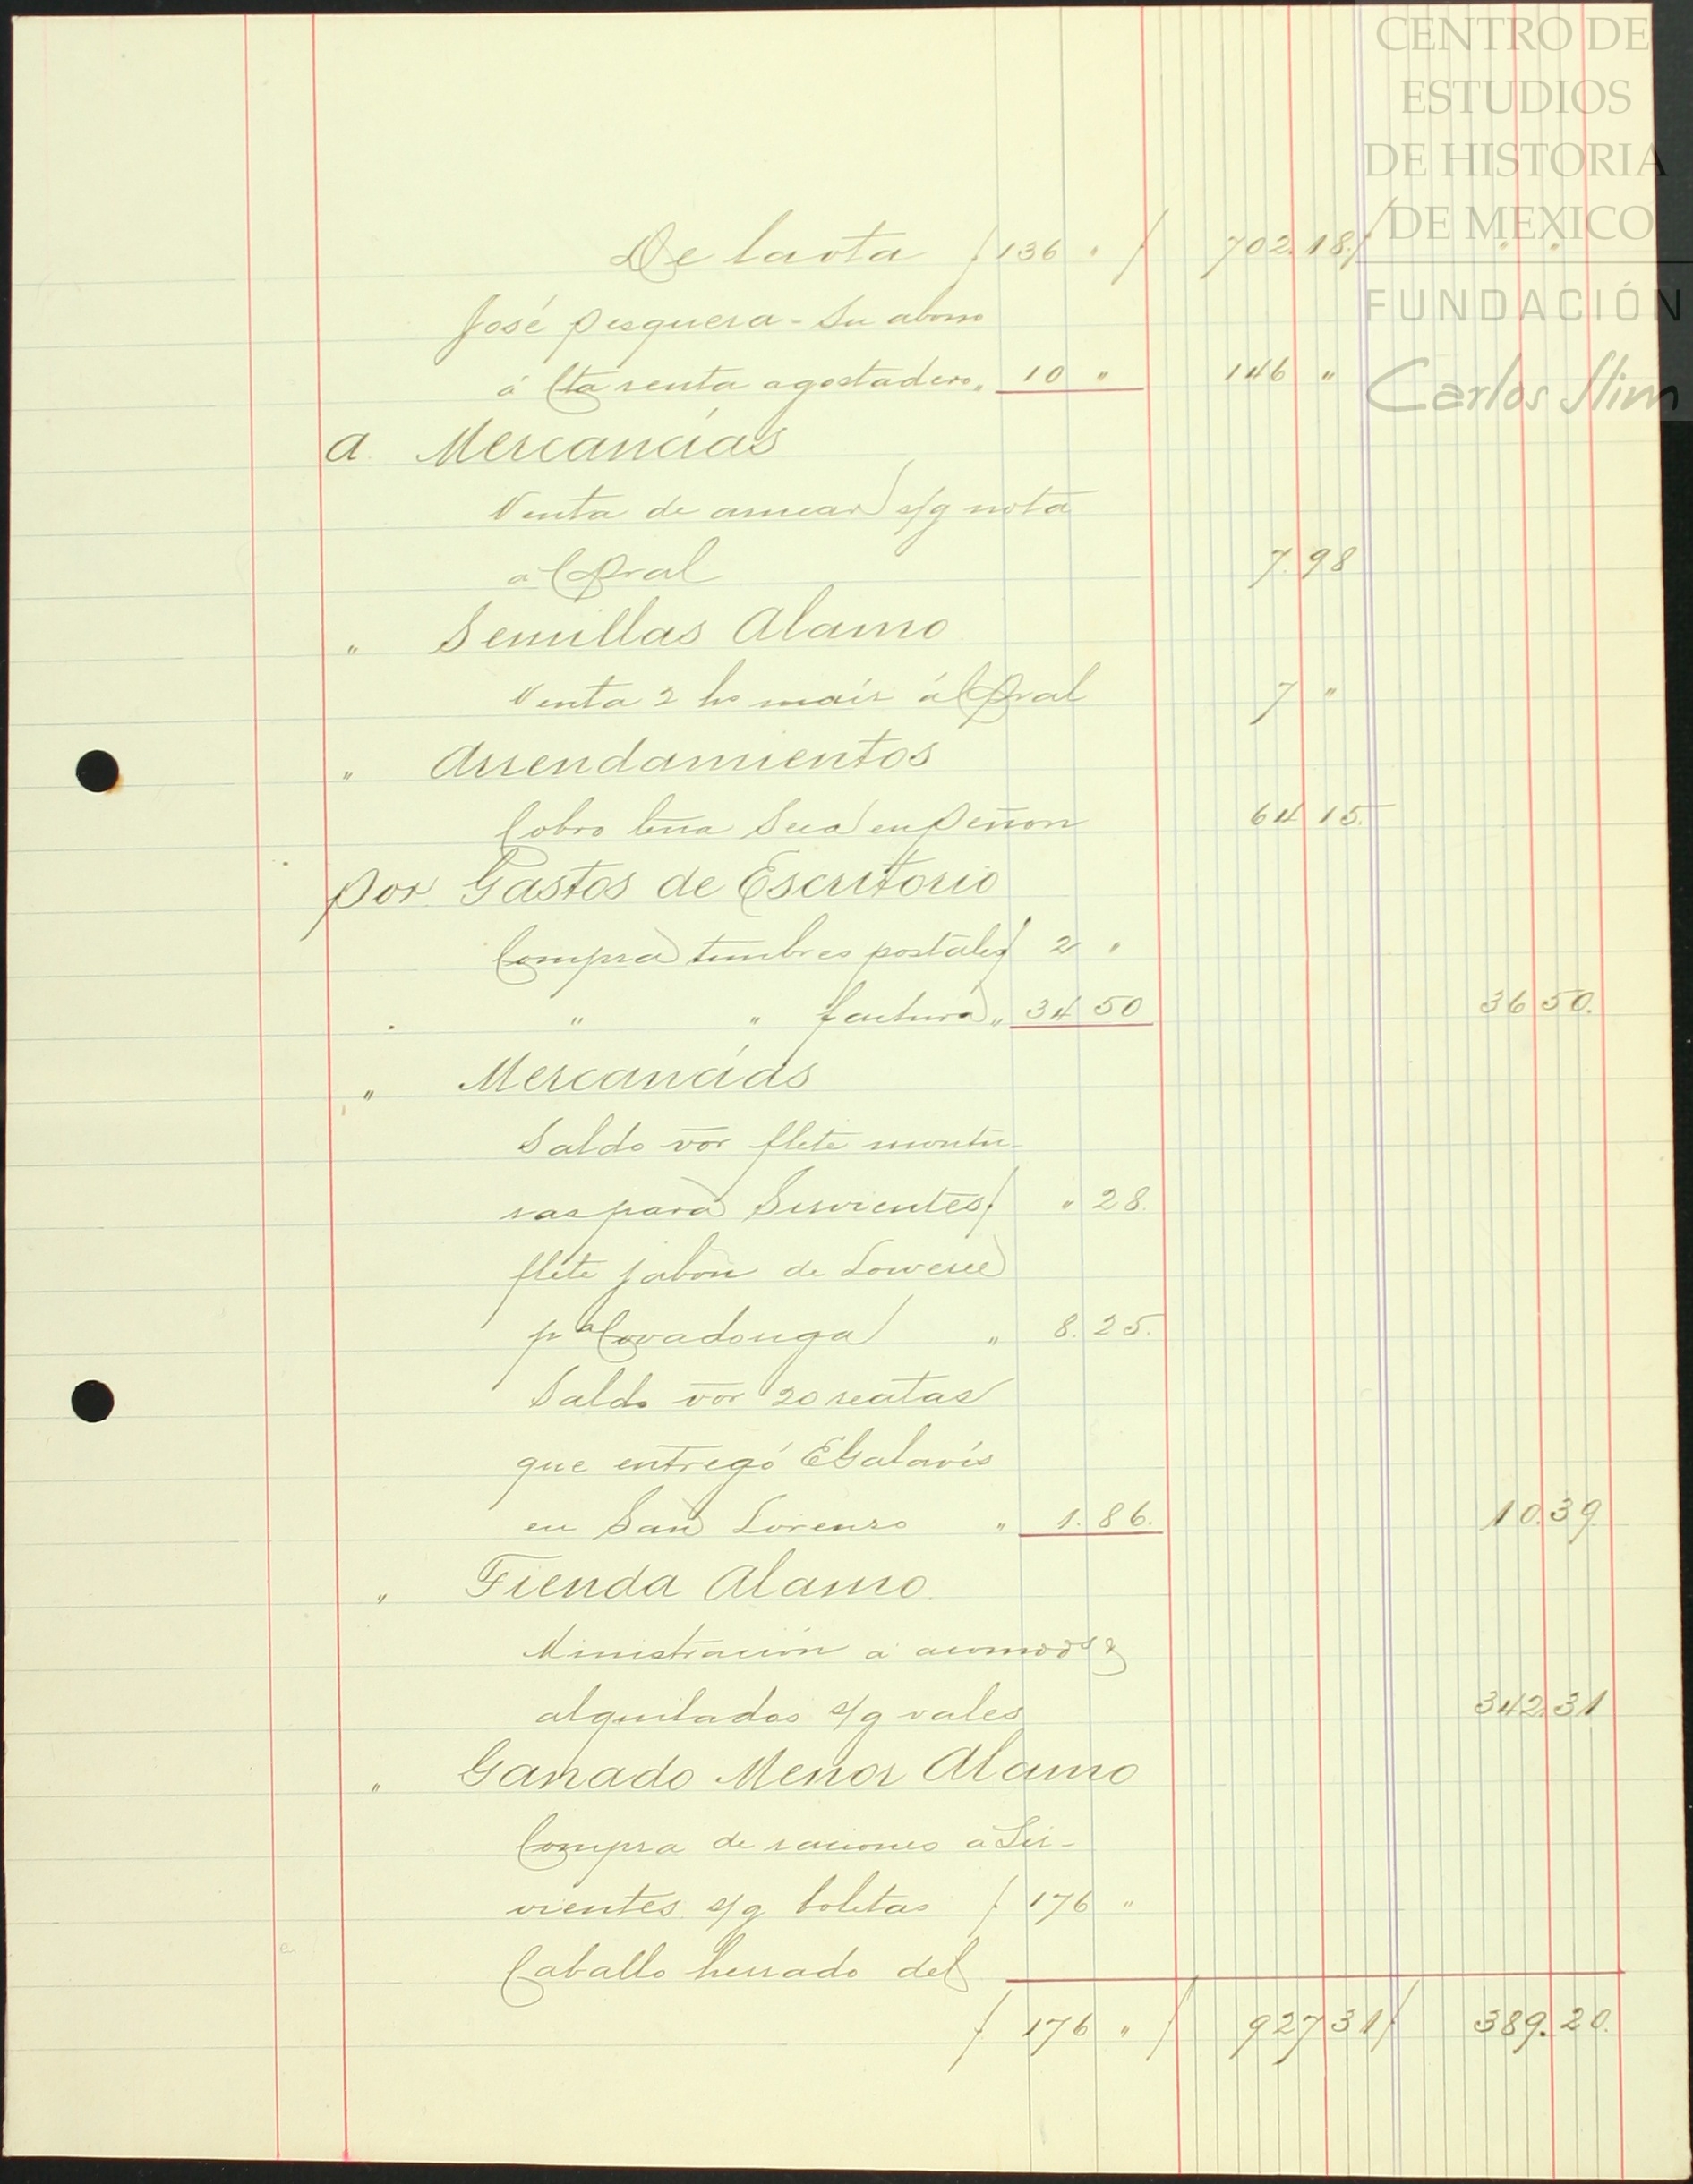 CENTRO DE
ESTUDIOS
DE HISTORIA
DE MEXICO
FUNDACIÓN
Carlos Slim
De la vta $ 136 " $ 702.18 $ " "
José Pesquera - Su abono
á Cta renta agostadero " 10 " 146 "
a Mercancías
Venta de azucar s/g nota
al Pral 7.98
" Semillas Alamo
Venta 2 hs maíz al Pral 7 "
" Arrendamientos
Cobro Leña Seca en Peñon 64 15.
por Gastos de Escritorio
Compra timbres postales $ 2 "
" " factura " 34 50 36 50.
" Mercancías
Saldo vor flete montu-
ras para Sirvientes $ " 28.
flete jabón de Loweree
pa Covadonga " 8.25.
Saldo vor 20 reatas
que entregó E Galavís
en San Lorenzo " 1.86. 10.39
" Tienda Alamo
Ministración á acomodos &
alquilados s/g vales 342.31
" Ganado Menor Alamo
Compra de raciones a Sir-
vientes s/g boletas $ 176 "
Caballo herrado del
$ 176 " $ 927 31 $ 389.20.